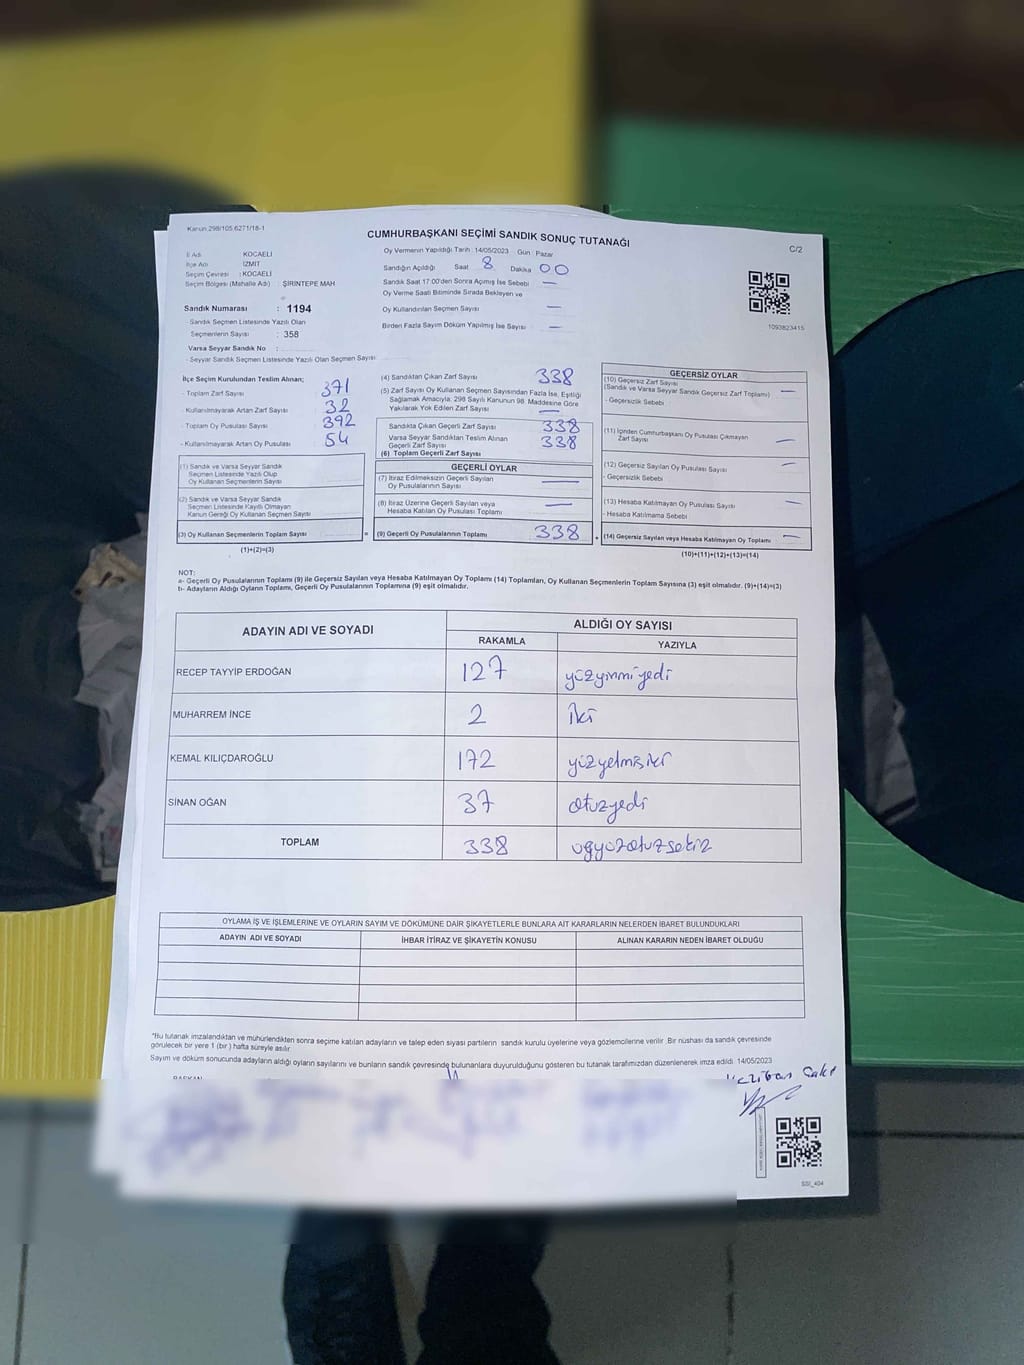 Kanun 298/105,6271/18-1
CUMHURBAŞKANI SEÇİMİ SANDIK SONUÇ TUTANAĞI
C/2
İl Adı : KOCAELİ
İlçe Adı : İZMİT
Seçim Çevresi : KOCAELİ
Seçim Bölgesi (Mahalle Adı) : ŞİRİNTEPE MAH
Sandık Numarası : 1194
- Sandık Seçmen Listesinde Yazılı Olan
Seçmenlerin Sayısı : 358
Varsa Seyyar Sandık No :
- Seyyar Sandık Seçmen Listesinde Yazılı Olan Seçmen Sayısı
Oy Vermenin Yapıldığı Tarih : 14/05/2023 Gün : Pazar
Sandığın Açıldığı Saat 8 Dakika 00
Sandık Saat 17:00'den Sonra Açılmış İse Sebebi —
Oy Verme Saati Bitiminde Sırada Bekleyen ve
Oy Kullandırılan Seçmen Sayısı —
Birden Fazla Sayım Döküm Yapılmış İse Sayısı —
1093823415
İlçe Seçim Kurulundan Teslim Alınan;
- Toplam Zarf Sayısı 371
- Kullanılmayarak Artan Zarf Sayısı 32
- Toplam Oy Pusulası Sayısı 392
- Kullanılmayarak Artan Oy Pusulası 54
(1) Sandık ve Varsa Seyyar Sandık
Seçmen Listesinde Yazılı Olup
Oy Kullanan Seçmenlerin Sayısı
(2) Sandık ve Varsa Seyyar Sandık
Seçmen Listesinde Kayıtlı Olmayan
Kanun Gereği Oy Kullanan Seçmen Sayısı
(3) Oy Kullanan Seçmenlerin Toplam Sayısı
(1)+(2)=(3)
(4) Sandıktan Çıkan Zarf Sayısı 338
(5) Zarf Sayısı Oy Kullanan Seçmen Sayısından Fazla İse, Eşitliği
Sağlamak Amacıyla, 298 Sayılı Kanunun 98. Maddesine Göre
Yakılarak Yok Edilen Zarf Sayısı —
Sandıkta Çıkan Geçerli Zarf Sayısı 338
Varsa Seyyar Sandıktan Teslim Alınan
Geçerli Zarf Sayısı 338
(6) Toplam Geçerli Zarf Sayısı
GEÇERLİ OYLAR
(7) İtiraz Edilmeksizin Geçerli Sayılan
Oy Pusulalarının Sayısı —
(8) İtiraz Üzerine Geçerli Sayılan veya
Hesaba Katılan Oy Pusulası Toplamı —
= (9) Geçerli Oy Pusulalarının Toplamı 338 +
GEÇERSİZ OYLAR
(10) Geçersiz Zarf Sayısı
(Sandık ve Varsa Seyyar Sandık Geçersiz Zarf Toplamı) —
- Geçersizlik Sebebi
(11) İçinden Cumhurbaşkanı Oy Pusulası Çıkmayan
Zarf Sayısı —
(12) Geçersiz Sayılan Oy Pusulası Sayısı —
- Geçersizlik Sebebi
(13) Hesaba Katılmayan Oy Pusulası Sayısı —
- Hesaba Katılmama Sebebi
(14) Geçersiz Sayılan veya Hesaba Katılmayan Oy Toplamı —
(10)+(11)+(12)+(13)=(14)
NOT:
a- Geçerli Oy Pusulalarının Toplamı (9) ile Geçersiz Sayılan veya Hesaba Katılmayan Oy Toplamı (14) Toplamları, Oy Kullanan Seçmenlerin Toplam Sayısına (3) eşit olmalıdır. (9)+(14)=(3)
b- Adayların Aldığı Oyların Toplamı, Geçerli Oy Pusulalarının Toplamına (9) eşit olmalıdır.
ADAYIN ADI VE SOYADI ALDIĞI OY SAYISI
RAKAMLA YAZIYLA
RECEP TAYYİP ERDOĞAN 127 yüzyirmiyedi
MUHARREM İNCE 2 iki
KEMAL KILIÇDAROĞLU 172 yüzyetmişiki
SİNAN OĞAN 37 otuzyedi
TOPLAM 338 üçyüzotuzsekiz
OYLAMA İŞ VE İŞLEMLERİNE VE OYLARIN SAYIM VE DÖKÜMÜNE DAİR ŞİKAYETLERLE BUNLARA AİT KARARLARIN NELERDEN İBARET BULUNDUKLARI
ADAYIN ADI VE SOYADI İHBAR İTİRAZ VE ŞİKAYETİN KONUSU ALINAN KARARIN NEDEN İBARET OLDUĞU
*Bu tutanak imzalandıktan ve mühürlendikten sonra seçime katılan adayların ve talep eden siyasi partilerin sandık kurulu üyelerine veya gözlemcilerine verilir. Bir nüshası da sandık çevresinde
görülecek bir yere 1 (bir) hafta süreyle asılır.
Sayım ve döküm sonucunda adayların aldığı oyların sayılarını ve bunların sandık çevresinde bulunanlara duyurulduğunu gösteren bu tutanak tarafımızdan düzenlenerek imza edildi. 14/05/2023
BAŞKAN
SSI_404